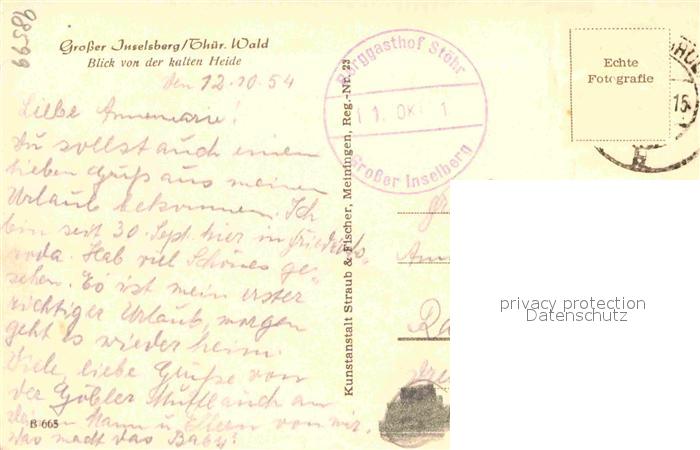 98599
Großer Inselsberg/Thür. Wald
Blick von der kalten Heide
den 12.10.54
Liebe Annemarie!
Du sollst auch einen
lieben Gruß aus meinen
Urlaub bekommen. Ich
bin seit 30. Sept. hier in Friedrichs-
roda. Hab viel Schönes ge-
sehen. Es ist mein erster
richtiger Urlaub, morgen
geht es wieder heim.
Viele, liebe Grüße von
der Gößler an
deinen Mann u. Eltern von mir.
Was macht das Baby?
B 665
Kunstanstalt Straub & Fischer, Meiningen, Reg.-Nr. 23
Berggasthof Stöhr
11. OKT. 1
Großer Inselberg
Echte
Fotografie
15
privacy protection
Datenschutz